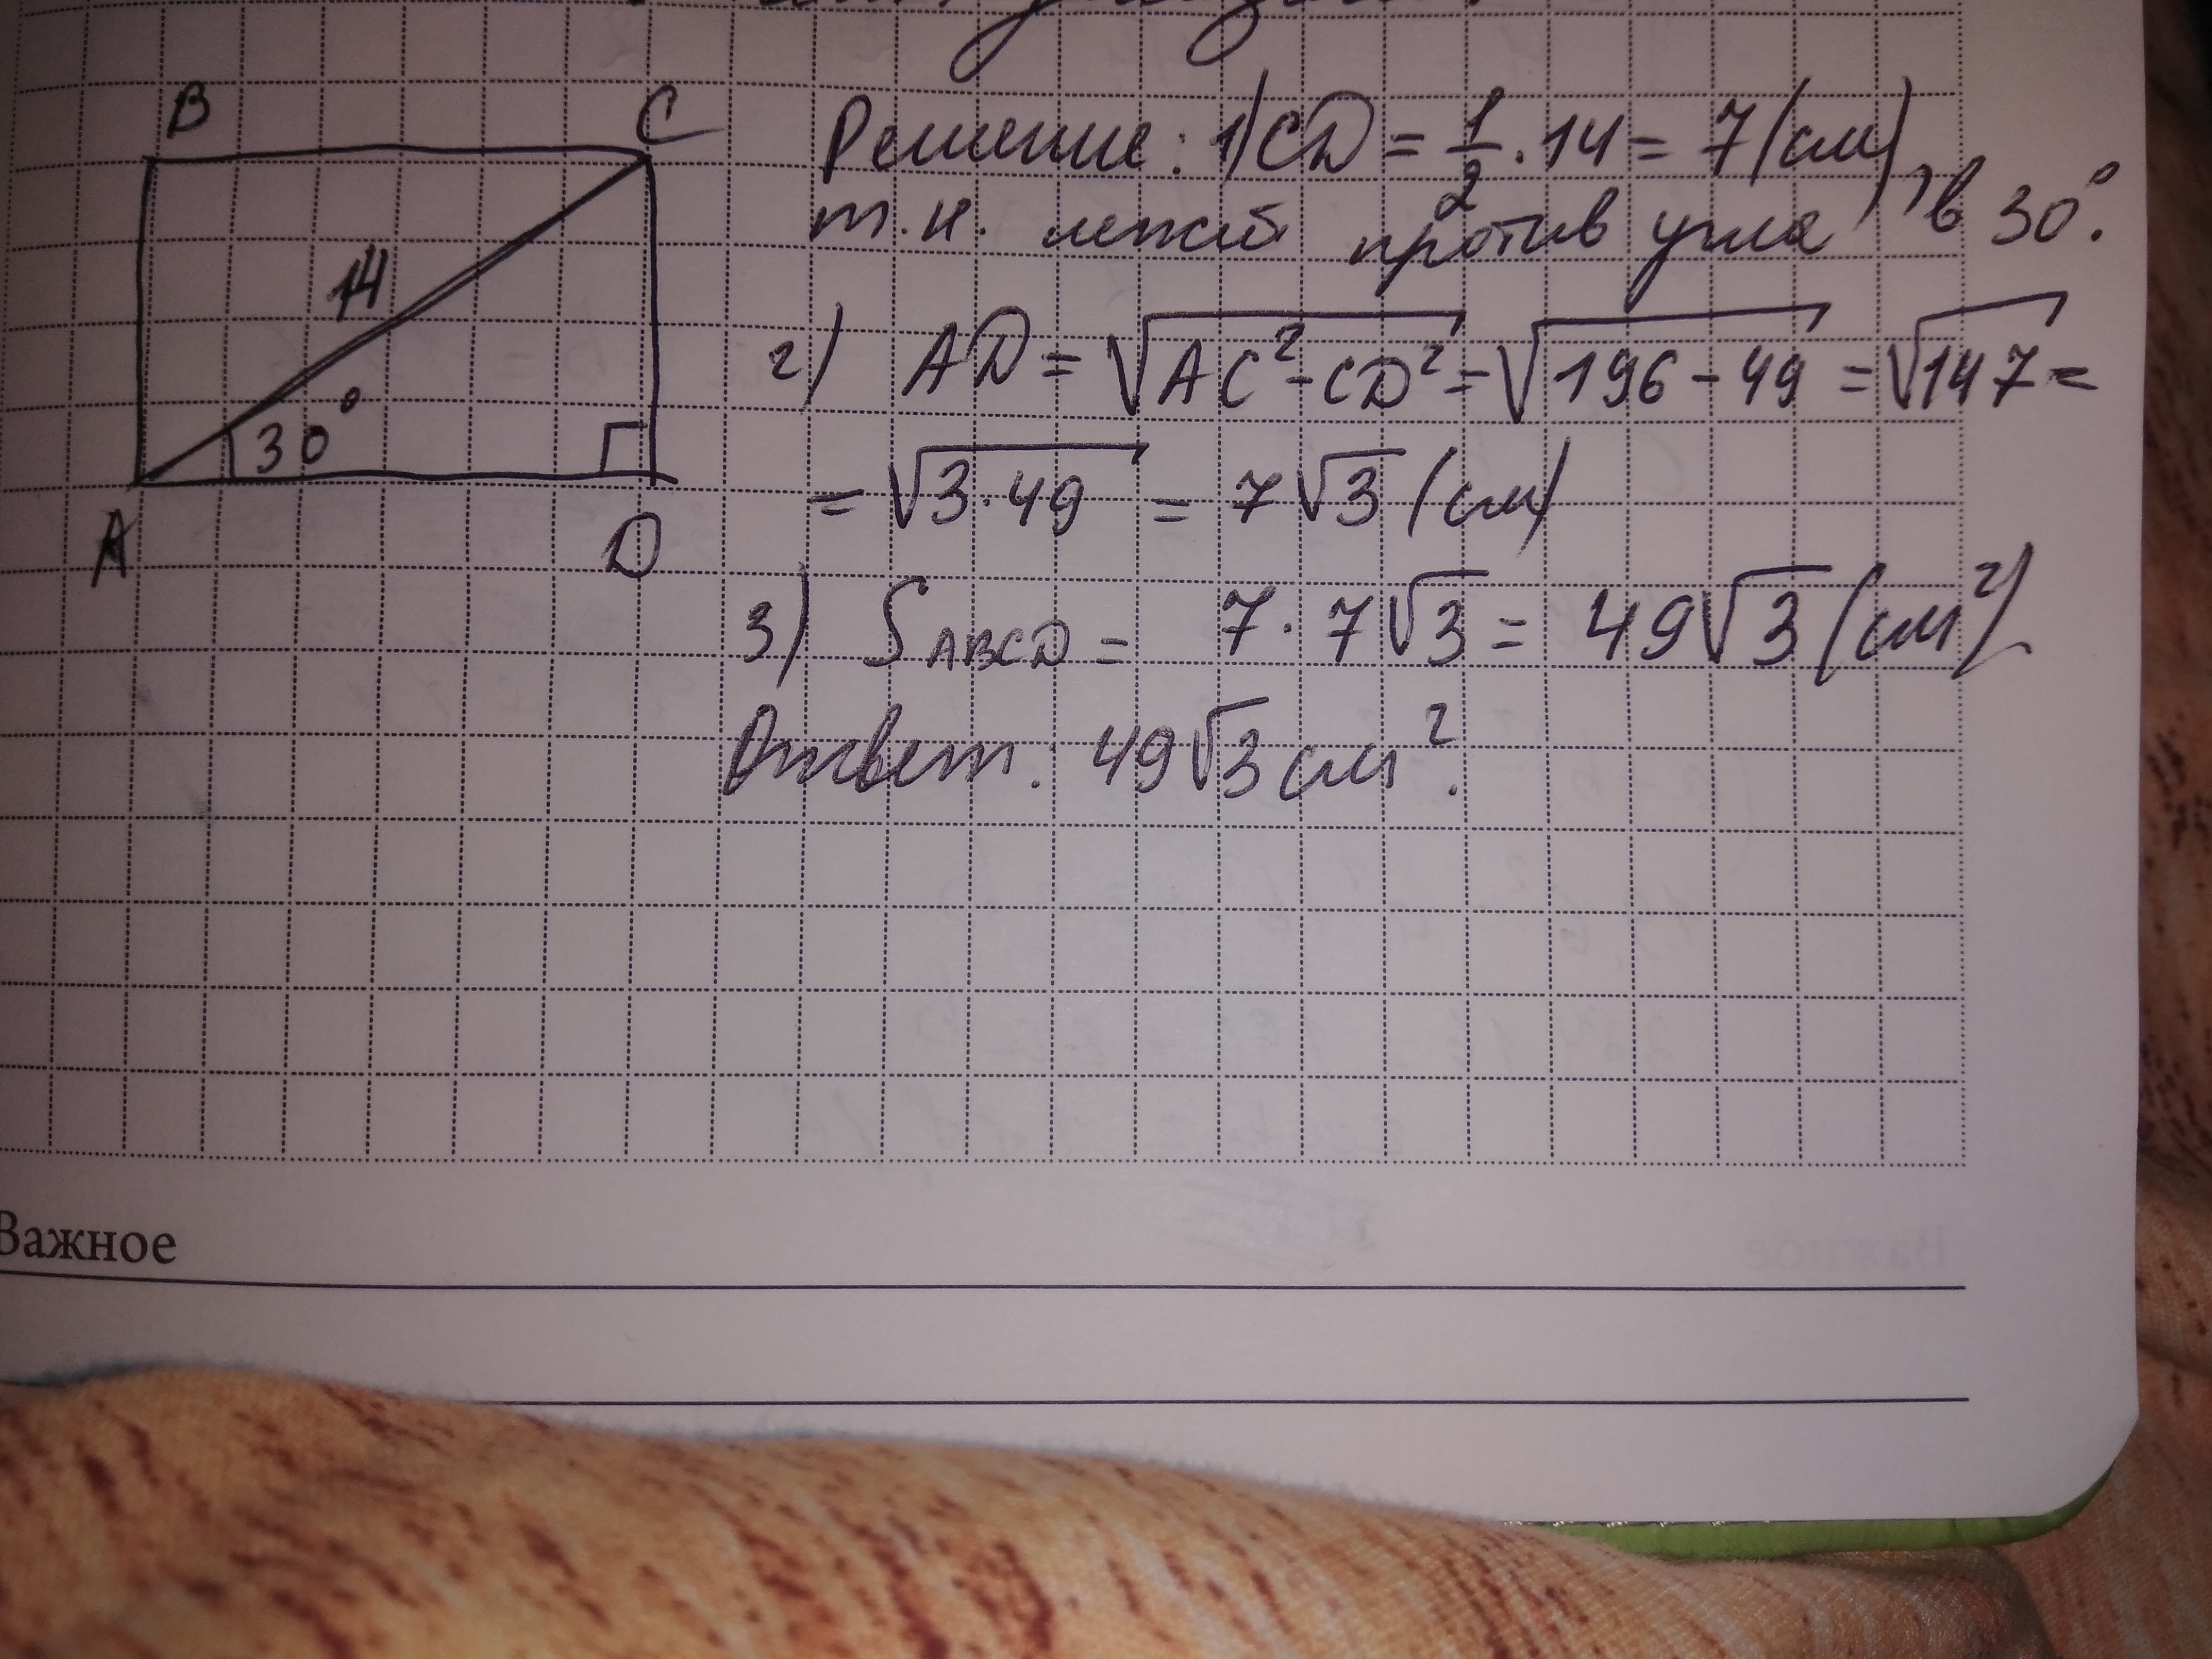 B
C
14
30°
A
D
Решение: 1) CD = 1/2 · 14 = 7 (см),
т.к. лежит против угла в 30°.
2) AD = √(AC² - CD²) = √(196 - 49) = √147 =
= √(3·49) = 7√3 (см)
3) S ABCD = 7 · 7√3 = 49√3 (см²)
Ответ: 49√3 см².
Важное